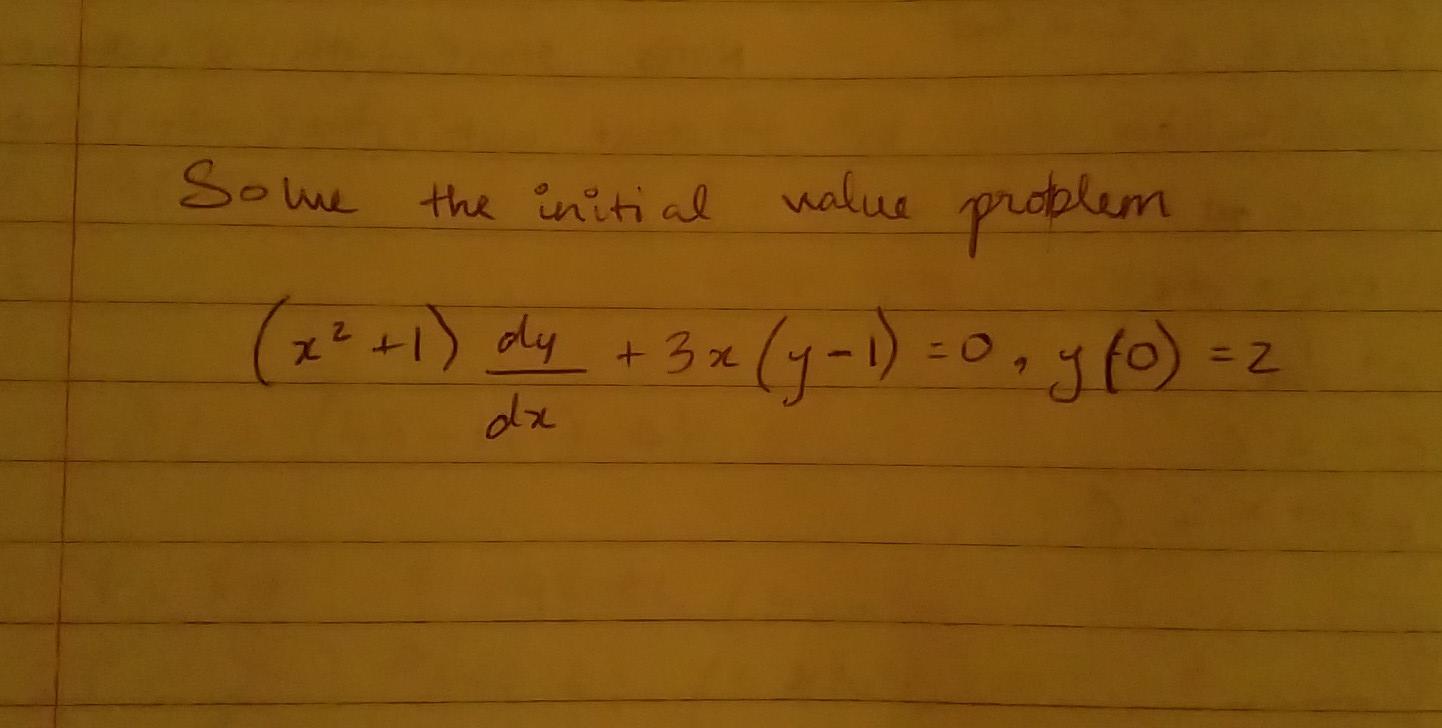 Solve the initial value problem
(x² + 1) dy/dx + 3x(y - 1) = 0, y(0) = 2